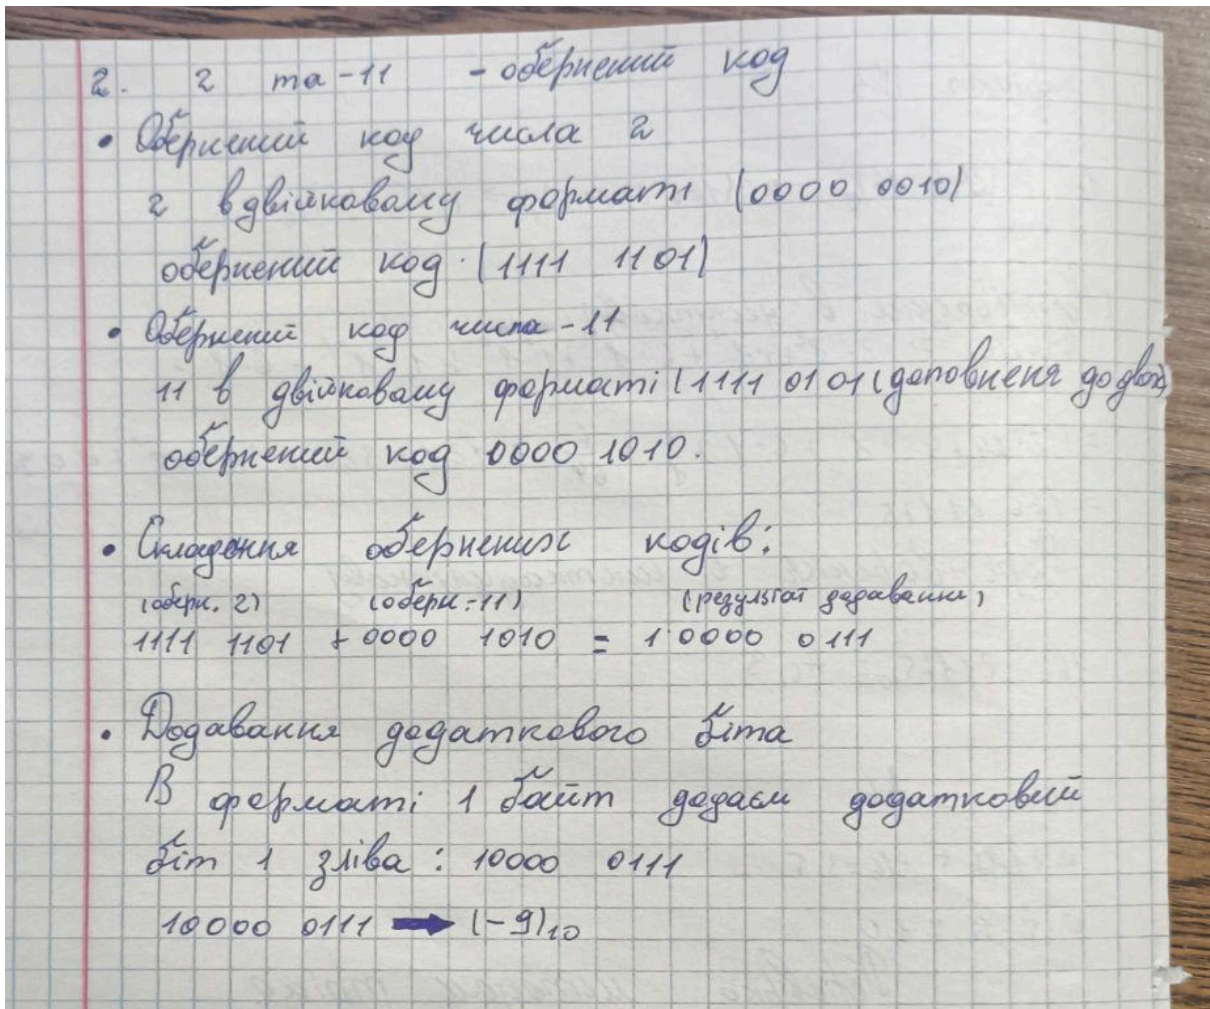 2. 2 та -11 - обернений код
• Обернений код числа 2
2 в двійковому форматі (0000 0010)
обернений код (1111 1101)
• Обернений код числа -11
11 в двійковому форматі (1111 0101 (доповненя до двох)
обернений код 0000 1010.
• Складення обернених кодів:
(оберн. 2) (оберн. -11) (результат додавання)
1111 1101 + 0000 1010 = 1 0000 0111
• Додавання додаткового біта
В форматі 1 байт додаєм додатковий
біт 1 зліва : 10000 0111
10000 0111 → (-9)10